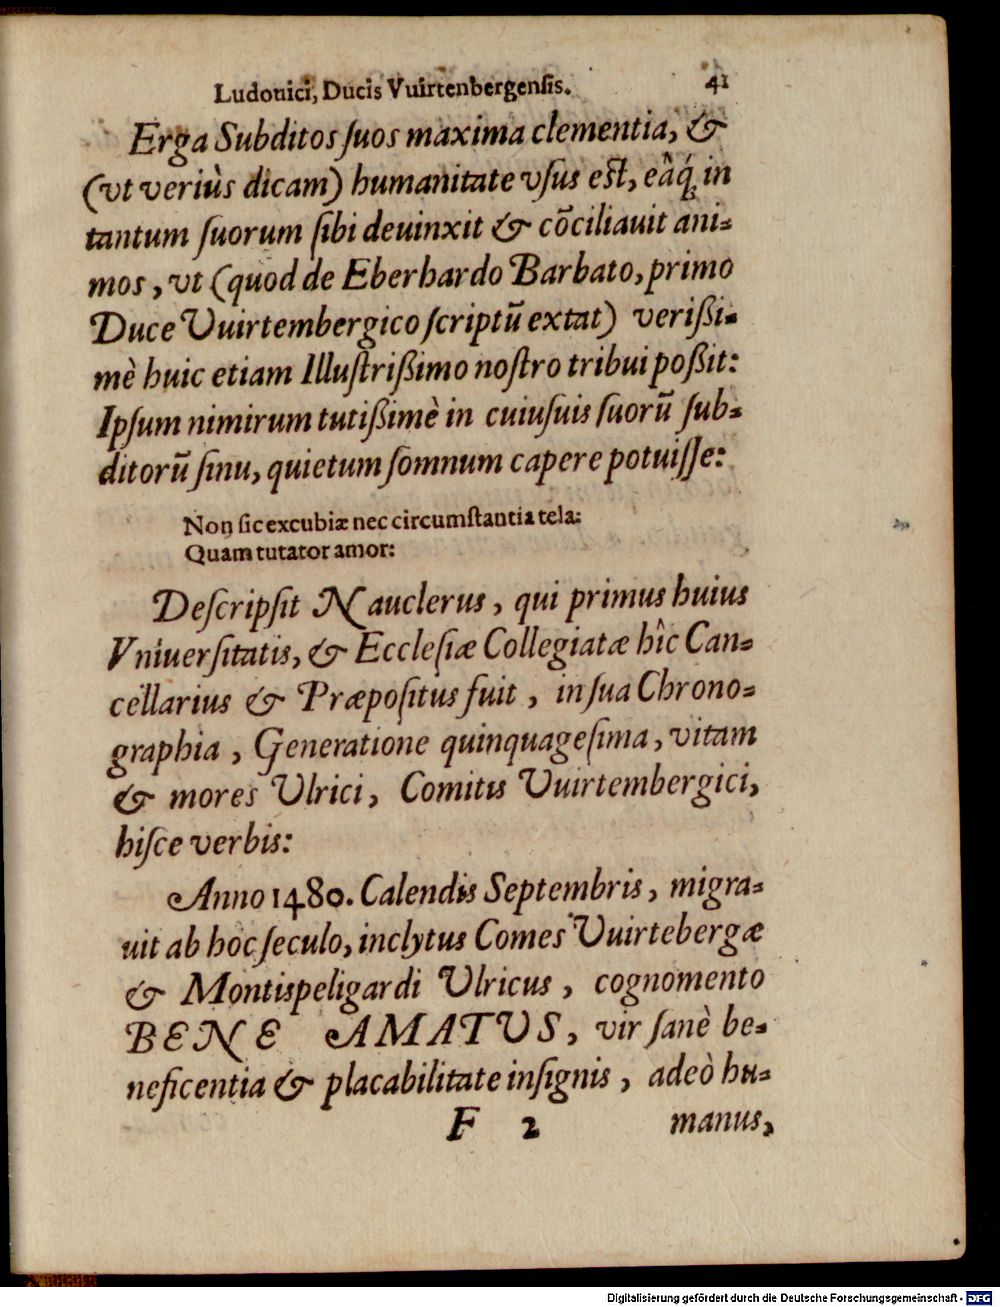 Ludouici, Ducis Vuirtenbergensis. 41
Erga Subditos ſuos maxima clementia, &
(vt veriùs dicam) humanitate vſus eſt, eâq́; in
tantum ſuorum ſibi deuinxit & cõciliauit ani-
mos, vt (quod de Eberhardo Barbato, primo
Duce Vuirtembergico ſcriptũ extat) verißi-
mè huic etiam Illuſtrißimo noſtro tribui poßit:
Ipſum nimirum tutißimè in cuiuſuis ſuorũ ſub-
ditorũ ſinu, quietum ſomnum capere potuiſſe:
Non ſic excubiæ nec circumſtantia tela:
Quam tutator amor:
Deſcripſit Nauclerus, qui primus huius
Vniuerſitatis, & Eccleſiæ Collegiatæ hîc Can-
cellarius & Præpoſitus fuit, in ſua Chrono-
graphia, Generatione quinquageſima, vitam
& mores Vlrici, Comitis Vuirtembergici,
hiſce verbis:
Anno 1480. Calendis Septembris, migra-
uit ab hoc ſeculo, inclytus Comes Vuirtebergæ
& Montispeligardi Vlricus, cognomento
BENE AMATVS, vir ſanè be-
neficentia & placabilitate inſignis, adeò hu-
F 2 manus,
Digitalisierung gefördert durch die Deutsche Forschungsgemeinschaft - DFG